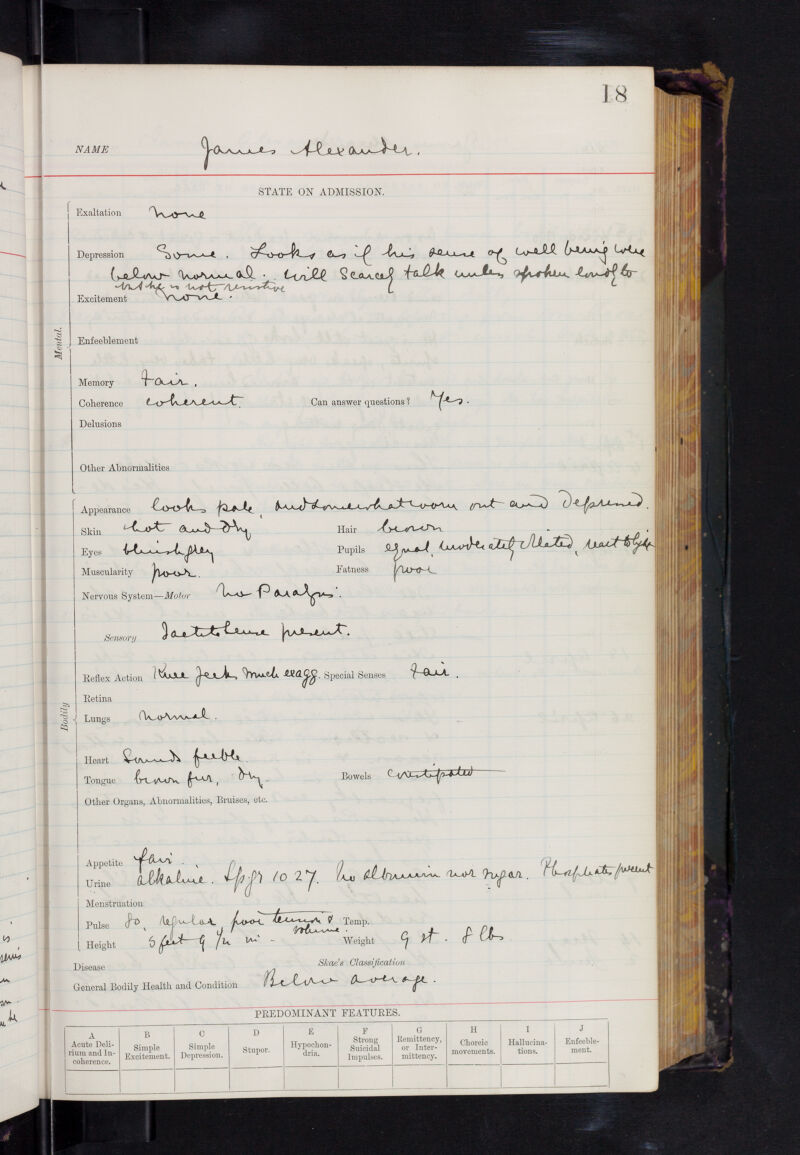 18
NAME James Alexander.
STATE ON ADMISSION.
Mental.
Exaltation None
Depression Some. Looks as if his sense of well being were
below normal. Will scarcely talk unless spoken loudly to
but he is not resistive
Excitement None.
Enfeeblement
Memory Fair.
Coherence Coherent. Can answer questions? Yes.
Delusions
Other Abnormalities
Bodily
Appearance looks pale, and somewhat worn out and Depressed.
Skin Hot and Dry Hair brown
Eyes bluish grey Pupils equal, moderately dilated, react to light
Muscularity poor. Fatness poor
Nervous System—Motor No Paralysis.
Sensory Tactile sense present.
Reflex Action Knee Jerks much exagg. Special Senses Fair.
Retina
Lungs Normal.
Heart Sounds feeble.
Tongue brown fur, dry. Bowels Constipated
Other Organs, Abnormalities, Bruises, etc.
Appetite fair.
Urine alkaline. Sp gr 1027. No albumin nor sugar. Phosphates present
Menstruation
Pulse 80, regular, poor tension & volume. Temp.
Height 5 feet 9 1/2 in. Weight 9 st. 8 lbs
Disease Skae's Classification
General Bodily Health and Condition Below average.
PREDOMINANT FEATURES.
A B C D E F G H I J
Acute Delirium and Incoherence. Simple Excitement. Simple Depression. Stupor. Hypochondria. Strong Suicidal Impulses. Remittency, or Intermittency. Choreic movements. Hallucinations. Enfeeblement.